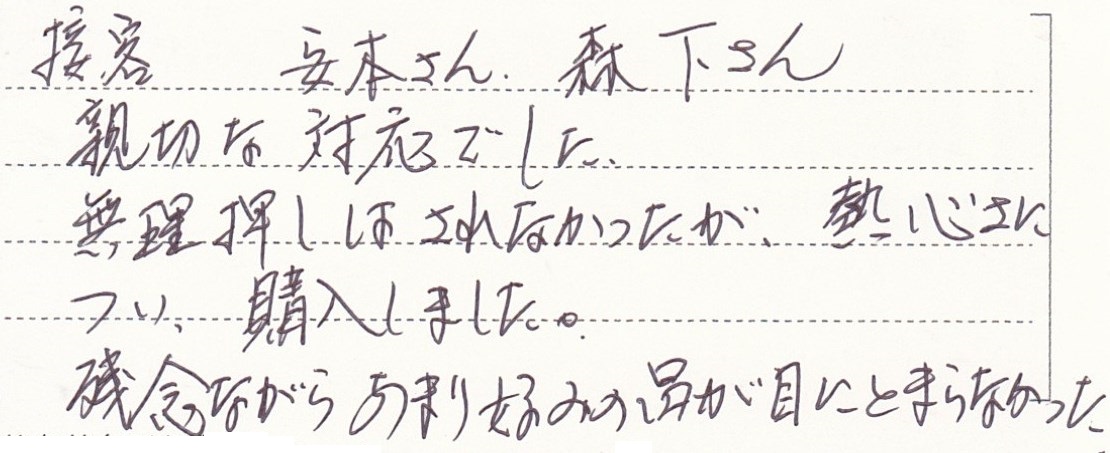 接客 安本さん. 森下さん
親切な対応でした、
無理押しはされなかったが、熱心さに
つい、購入しました。
残念ながらあまり好みの品が目にとまらなかった